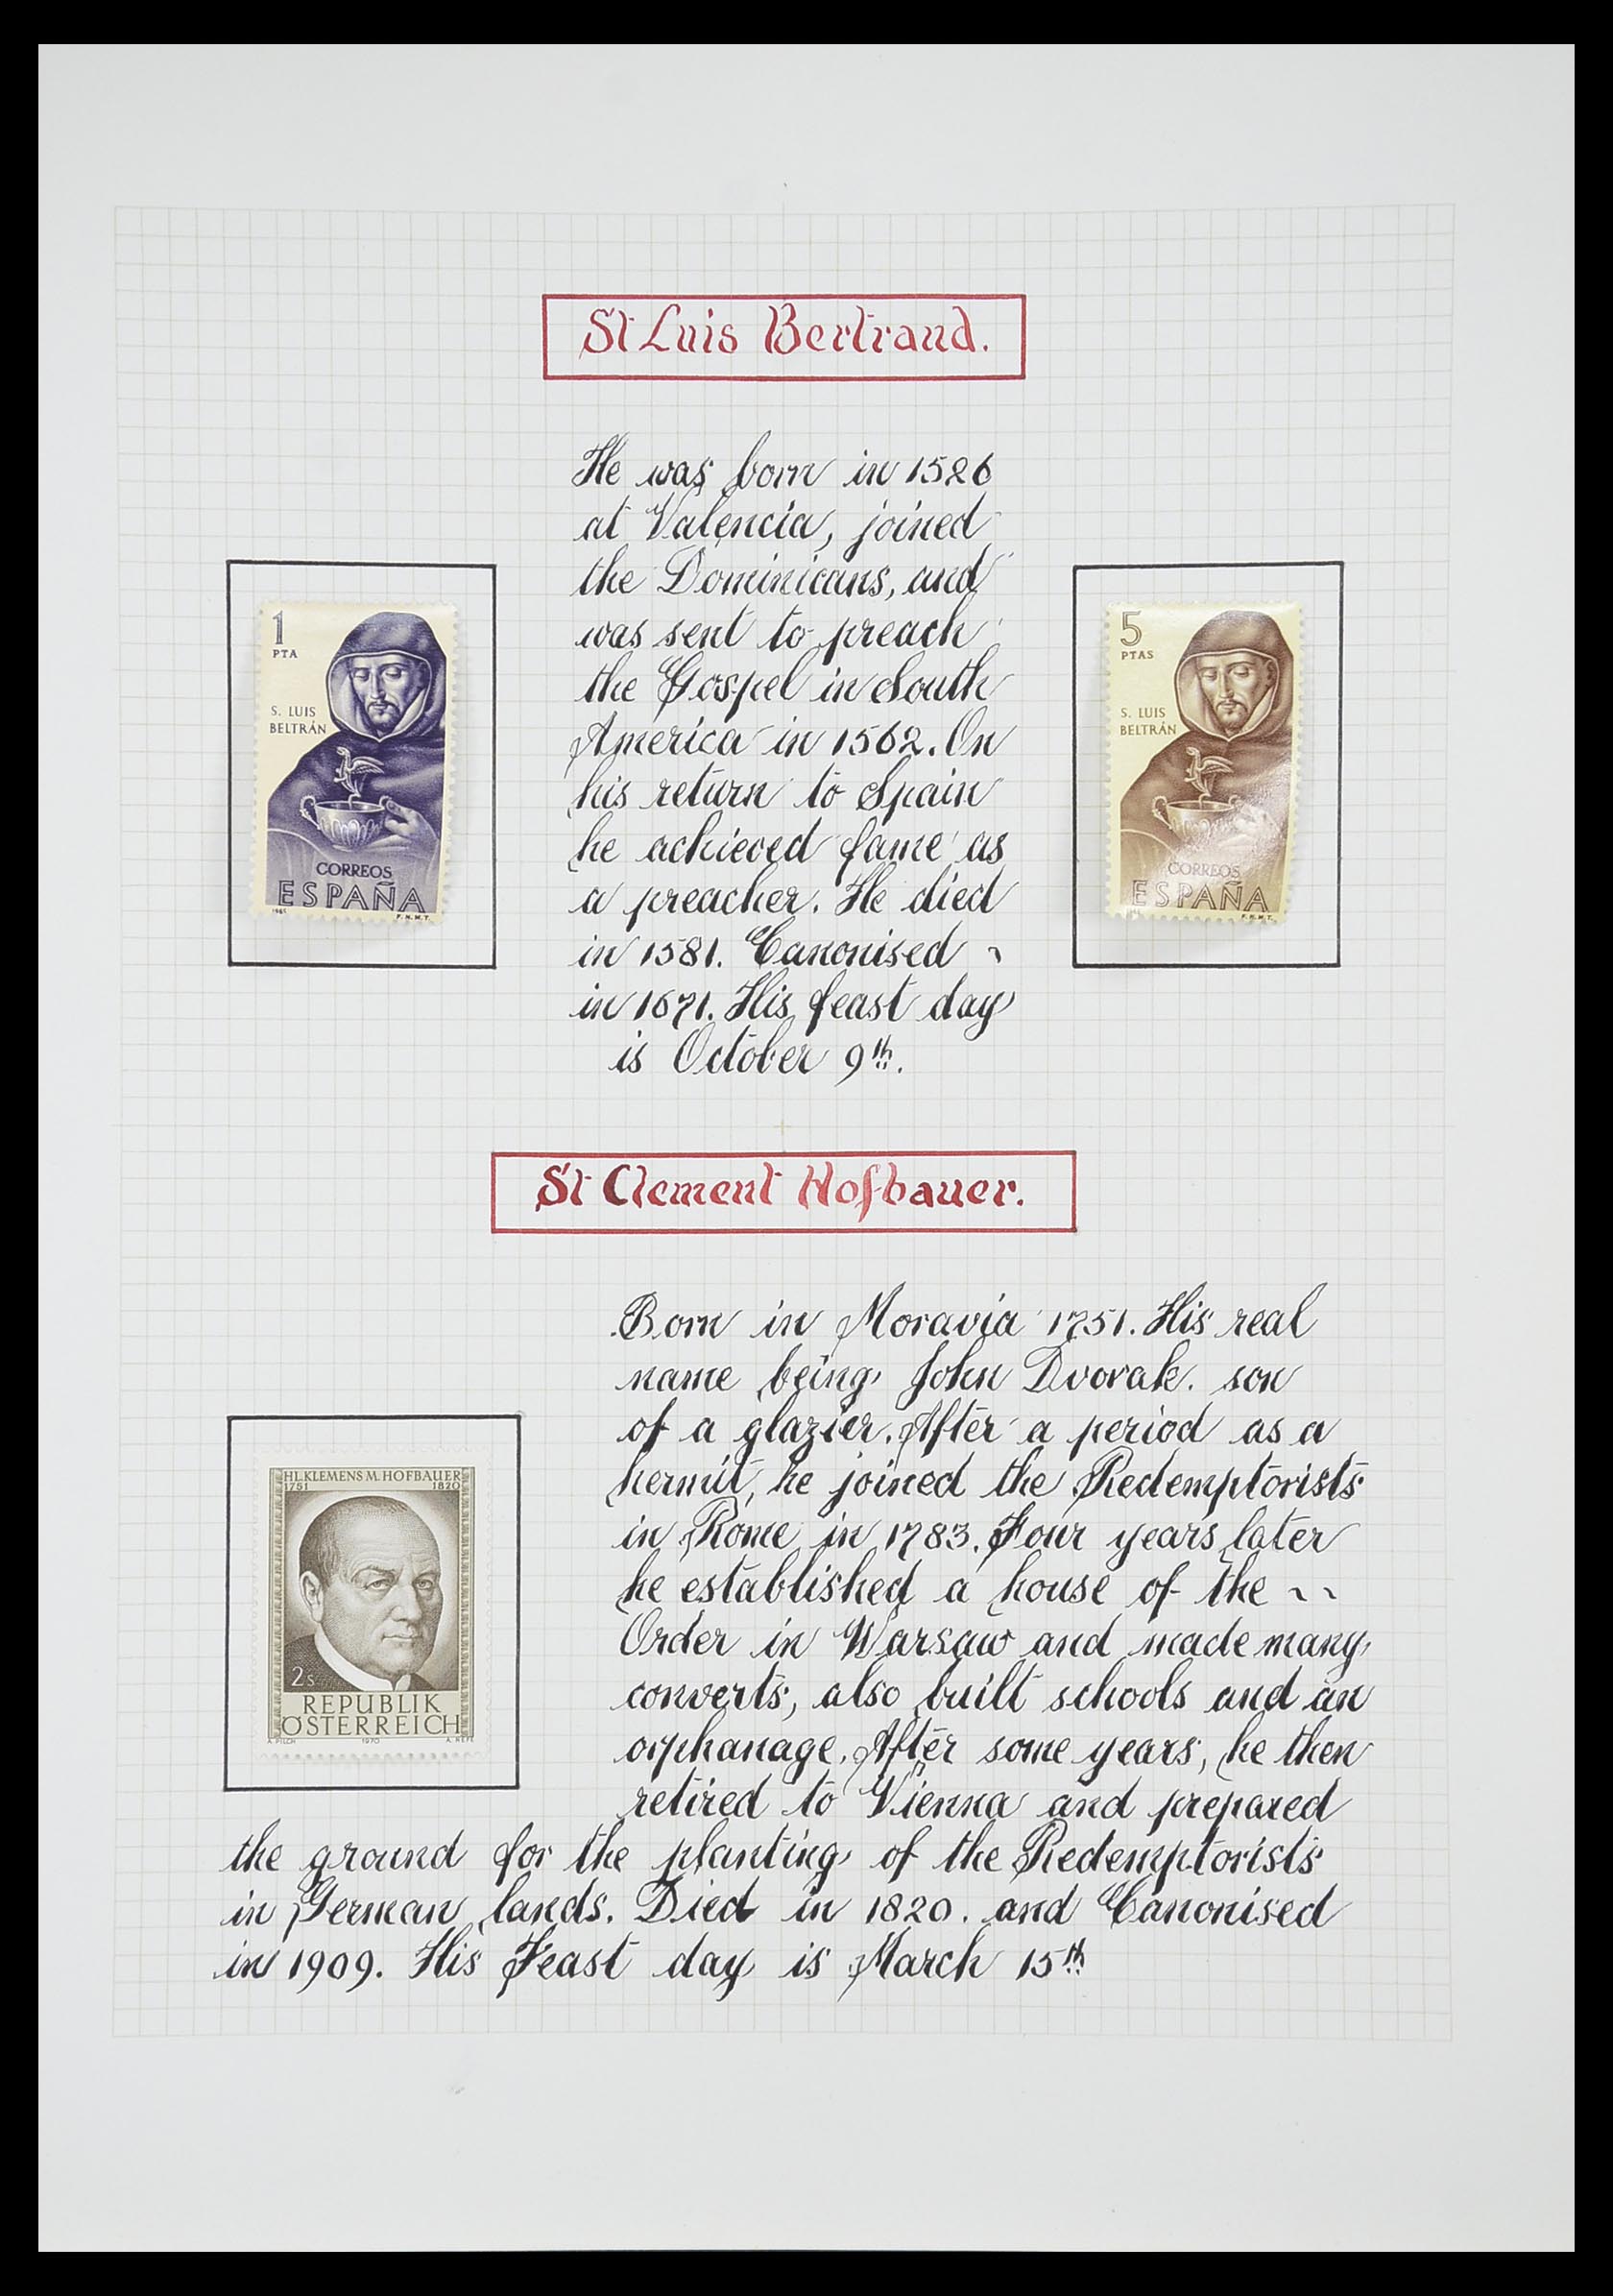 St Luis Bertrand.
He was born in 1526
at Valencia, joined
the Dominicans, and
was sent to preach
the Gospel in South
America in 1562. On
his return to Spain
he achieved fame as
a preacher. He died
in 1581. Canonised ~
in 1671. His feast day
is October 9th.
1
PTA
S. LUIS
BELTRÁN
CORREOS
ESPAÑA
F.N.M.T.
5
PTAS
S. LUIS
BELTRÁN
CORREOS
ESPAÑA
F.N.M.T.
St Clement Hofbauer.
Born in Moravia 1751. His real
name being John Dvorak. son
of a glazier. After a period as a
hermit, he joined the Redemptorists
in Rome in 1783. Four years later
he established a house of the ~ ~
Order in Warsaw and made many
converts, also built schools and an
orphanage. After some years, he then
retired to Vienna and prepared
the ground for the planting of the Redemptorists
in German lands. Died in 1820. and Canonised
in 1909. His Feast day is March 15th
HL.KLEMENS M. HOFBAUER
1751 1820
2s
REPUBLIK
ÖSTERREICH
A. PILCH 1970